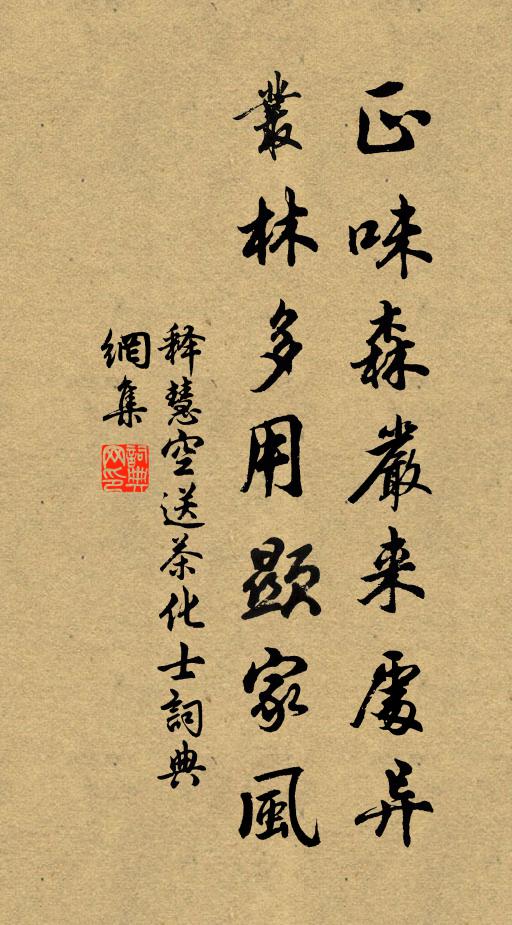 正味森嚴来處异
叢林多用顯家風
释慧空送茶化士詞典
網集
詞典
网印